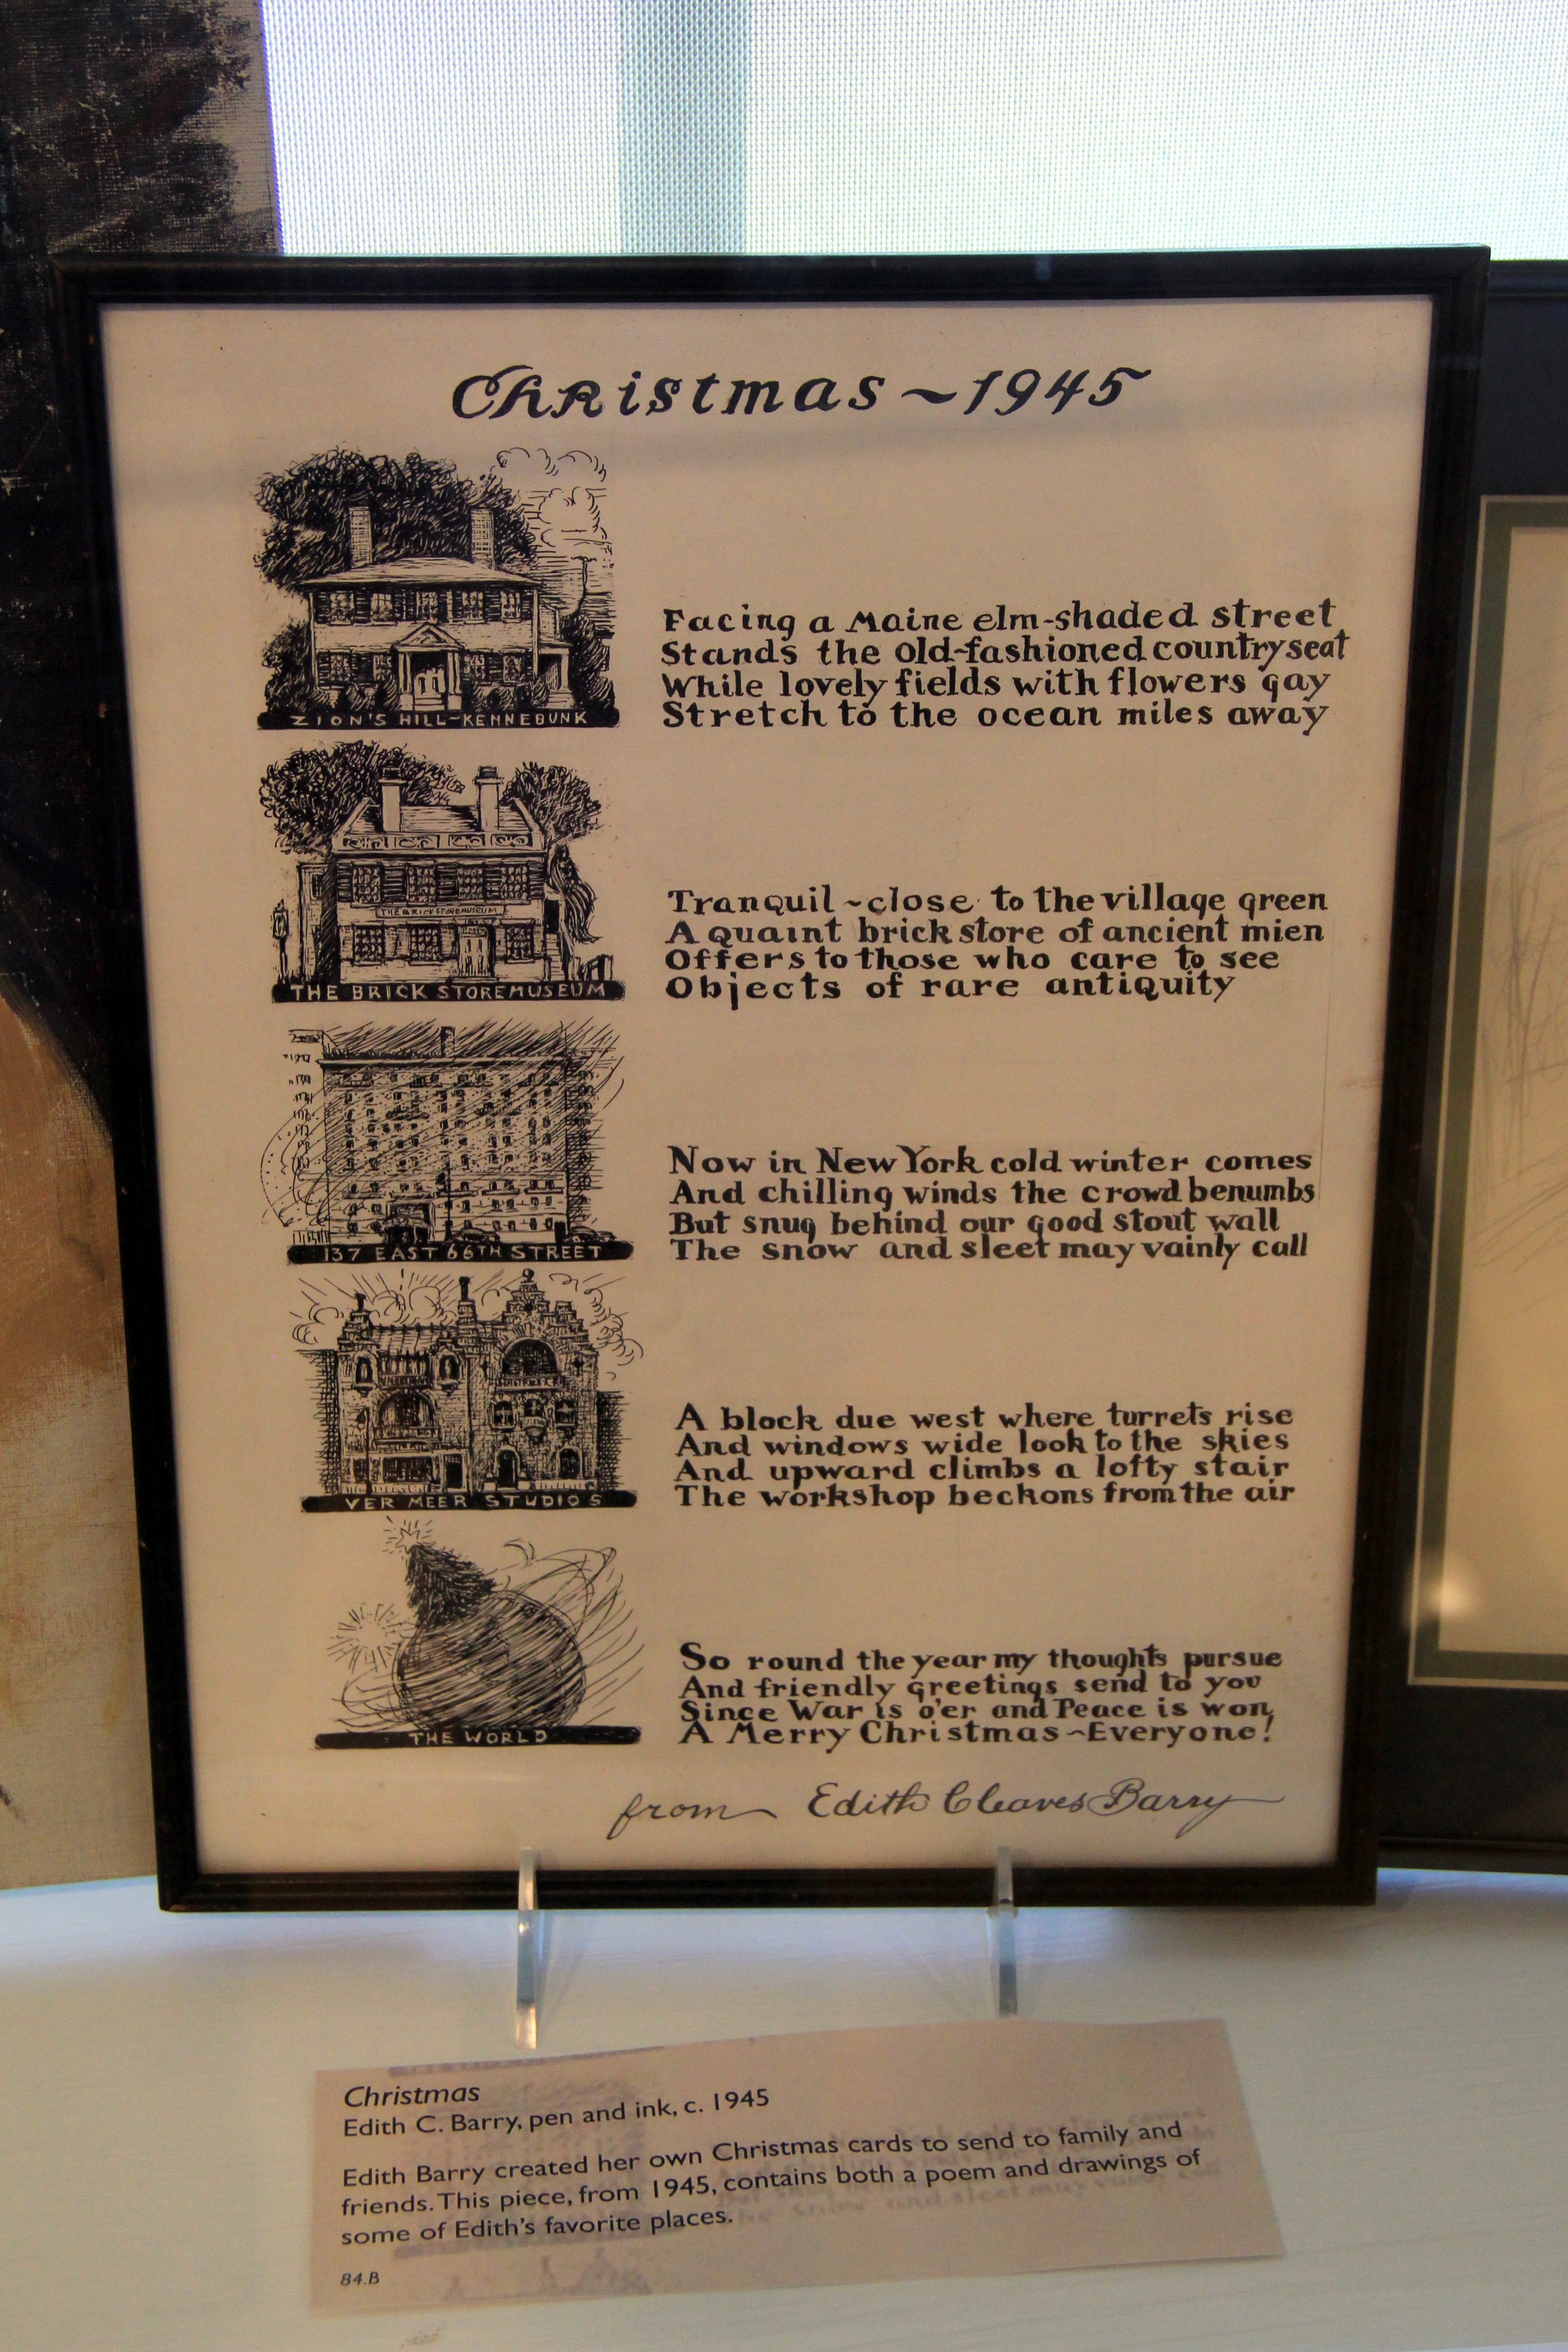 Christmas ~ 1945
ZION'S HILL-KENNEBUNK
Facing a Maine elm-shaded street
Stands the old-fashioned country seat
While lovely fields with flowers gay
Stretch to the ocean miles away
THE BRICK STORE MUSEUM
THE BRICK STORE MUSEUM
Tranquil ~ close to the village green
A quaint brick store of ancient mien
Offers to those who care to see
Objects of rare antiquity
137 EAST 66TH STREET
Now in New York cold winter comes
And chilling winds the crowd benumbs
But snug behind our good stout wall
The snow and sleet may vainly call
VER MEER STUDIOS
A block due west where turrets rise
And windows wide look to the skies
And upward climbs a lofty stair
The workshop beckons from the air
THE WORLD
So round the year my thoughts pursue
And friendly greetings send to you
Since War is o'er and Peace is won,
A Merry Christmas ~ Everyone!
from Edith Cleaves Barry
Christmas
Edith C. Barry, pen and ink, c. 1945
Edith Barry created her own Christmas cards to send to family and
friends. This piece, from 1945, contains both a poem and drawings of
some of Edith's favorite places.
84.B